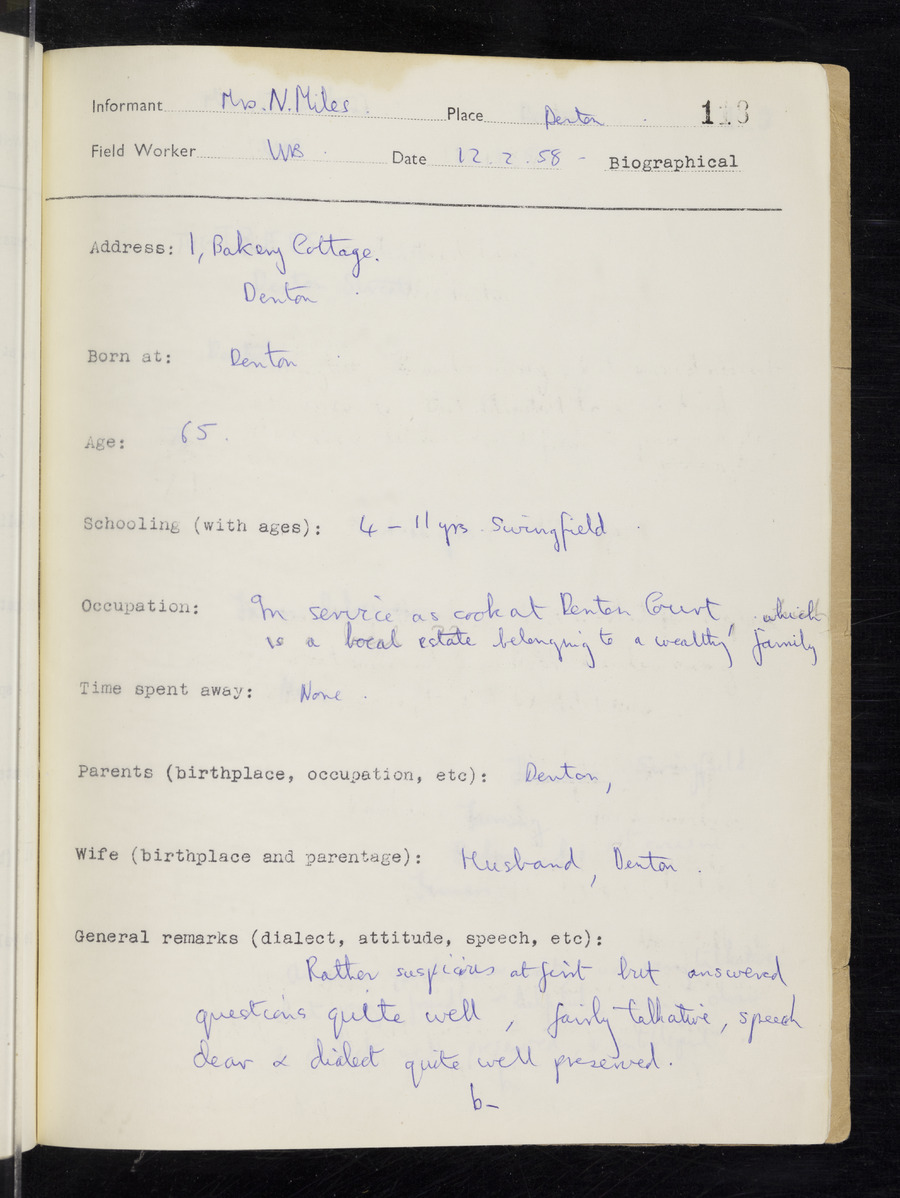 Informant Mrs. N. Miles. Place Denton. 113
Field Worker WB. Date 12.2.58 - Biographical
Address: 1, Bakery Cottage.
Denton.
Born at: Denton.
Age: 65.
Schooling (with ages): 4 - 11 yrs. Swingfield.
Occupation: In service as cook at Denton Court, which
is a local estate belonging to a wealthy family
Time spent away: None.
Parents (birthplace, occupation, etc): Denton,
Wife (birthplace and parentage): Husband, Denton.
General remarks (dialect, attitude, speech, etc):
Rather suspicious at first but answered
questions quite well, fairly talkative, speech
clear & dialect quite well preserved.
b-